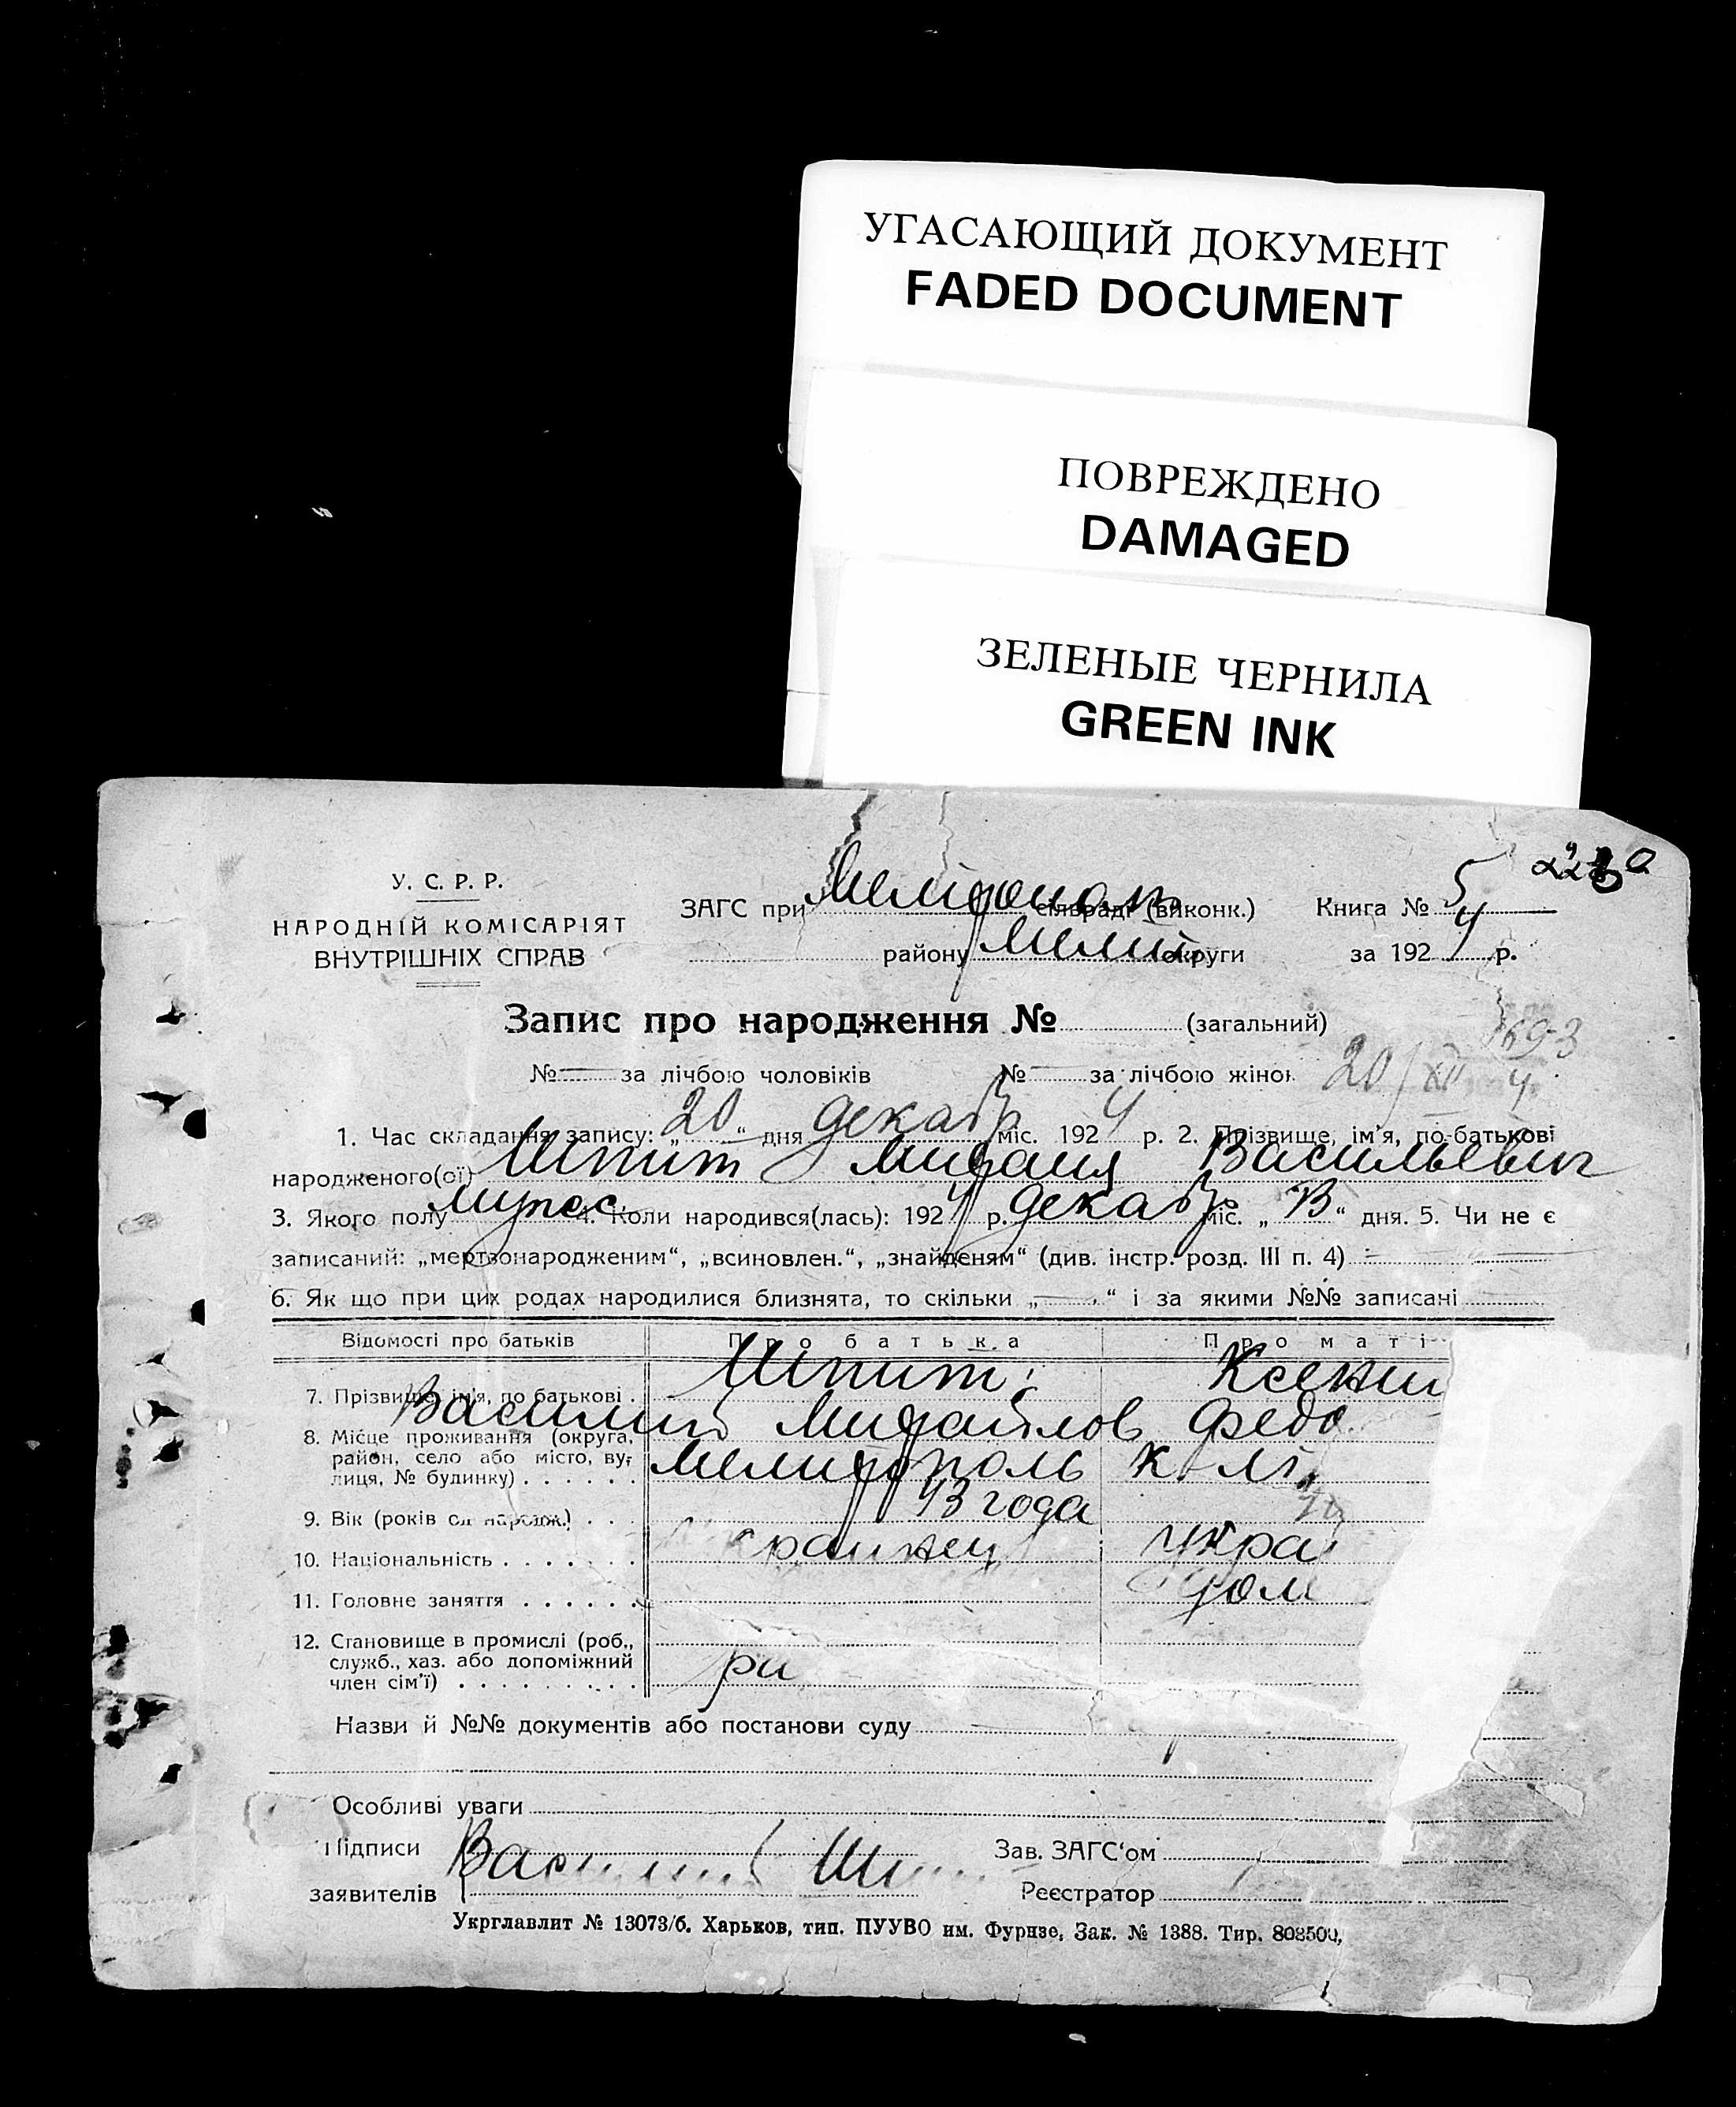 УГАСАЮЩИЙ ДОКУМЕНТ
FADED DOCUMENT
ПОВРЕЖДЕНО
DAMAGED
ЗЕЛЕНЫЕ ЧЕРНИЛА
GREEN INK
У. С. Р. Р.
НАРОДНІЙ КОМІСАРІЯТ
ВНУТРІШНІХ СПРАВ
ЗАГС при сільраді (виконк.) Книга № 5
району Мелит округи за 1924 р.
Запис про народження № (загальний)
1693
№ — за лічбою чоловіків № — за лічбою жінок 20/XII 4
1. Час складання запису: „20“ дня декабр міс. 1924 р. 2. Прізвище, ім'я, по-батькові
народженого(ої) Шпит Михаил Васильевич
3. Якого полу мужес. 4. Коли народився(лась): 1924 р. декабр міс. „ “ дня. 5. Чи не є
записаний: „мертвонародженим“, „всиновлен.“, „знайденям“ (див. інстр. розд. III п. 4)
6. Як що при цих родах народилися близнята, то скільки „—“ і за якими №№ записані
Відомості про батьків Про батька Про маті
7. Прізвище, ім'я, по батькові . Шпит Ксени
Василий Михайлов Федо
8. Місце проживання (округа, район, село або місто, вулиця, № будинку) . . . . . . Мелитополь
9. Вік (років од народж.) . . . 43 года
10. Національність . . . . . . . краинец Укра
11. Головне заняття . . . . . . дом
12. Становище в промислі (роб., служб., хаз. або допоміжний член сім'ї) . . . . . . . . . ра
Назви й №№ документів або постанови суду
Особливі уваги
Підписи Василий Ши Зав. ЗАГС'ом
заявителів Реєстратор
Укрглавлит № 13073/б. Харьков, тип. ПУУВО им. Фурнзе, Зак. № 1388. Тир. 802500,